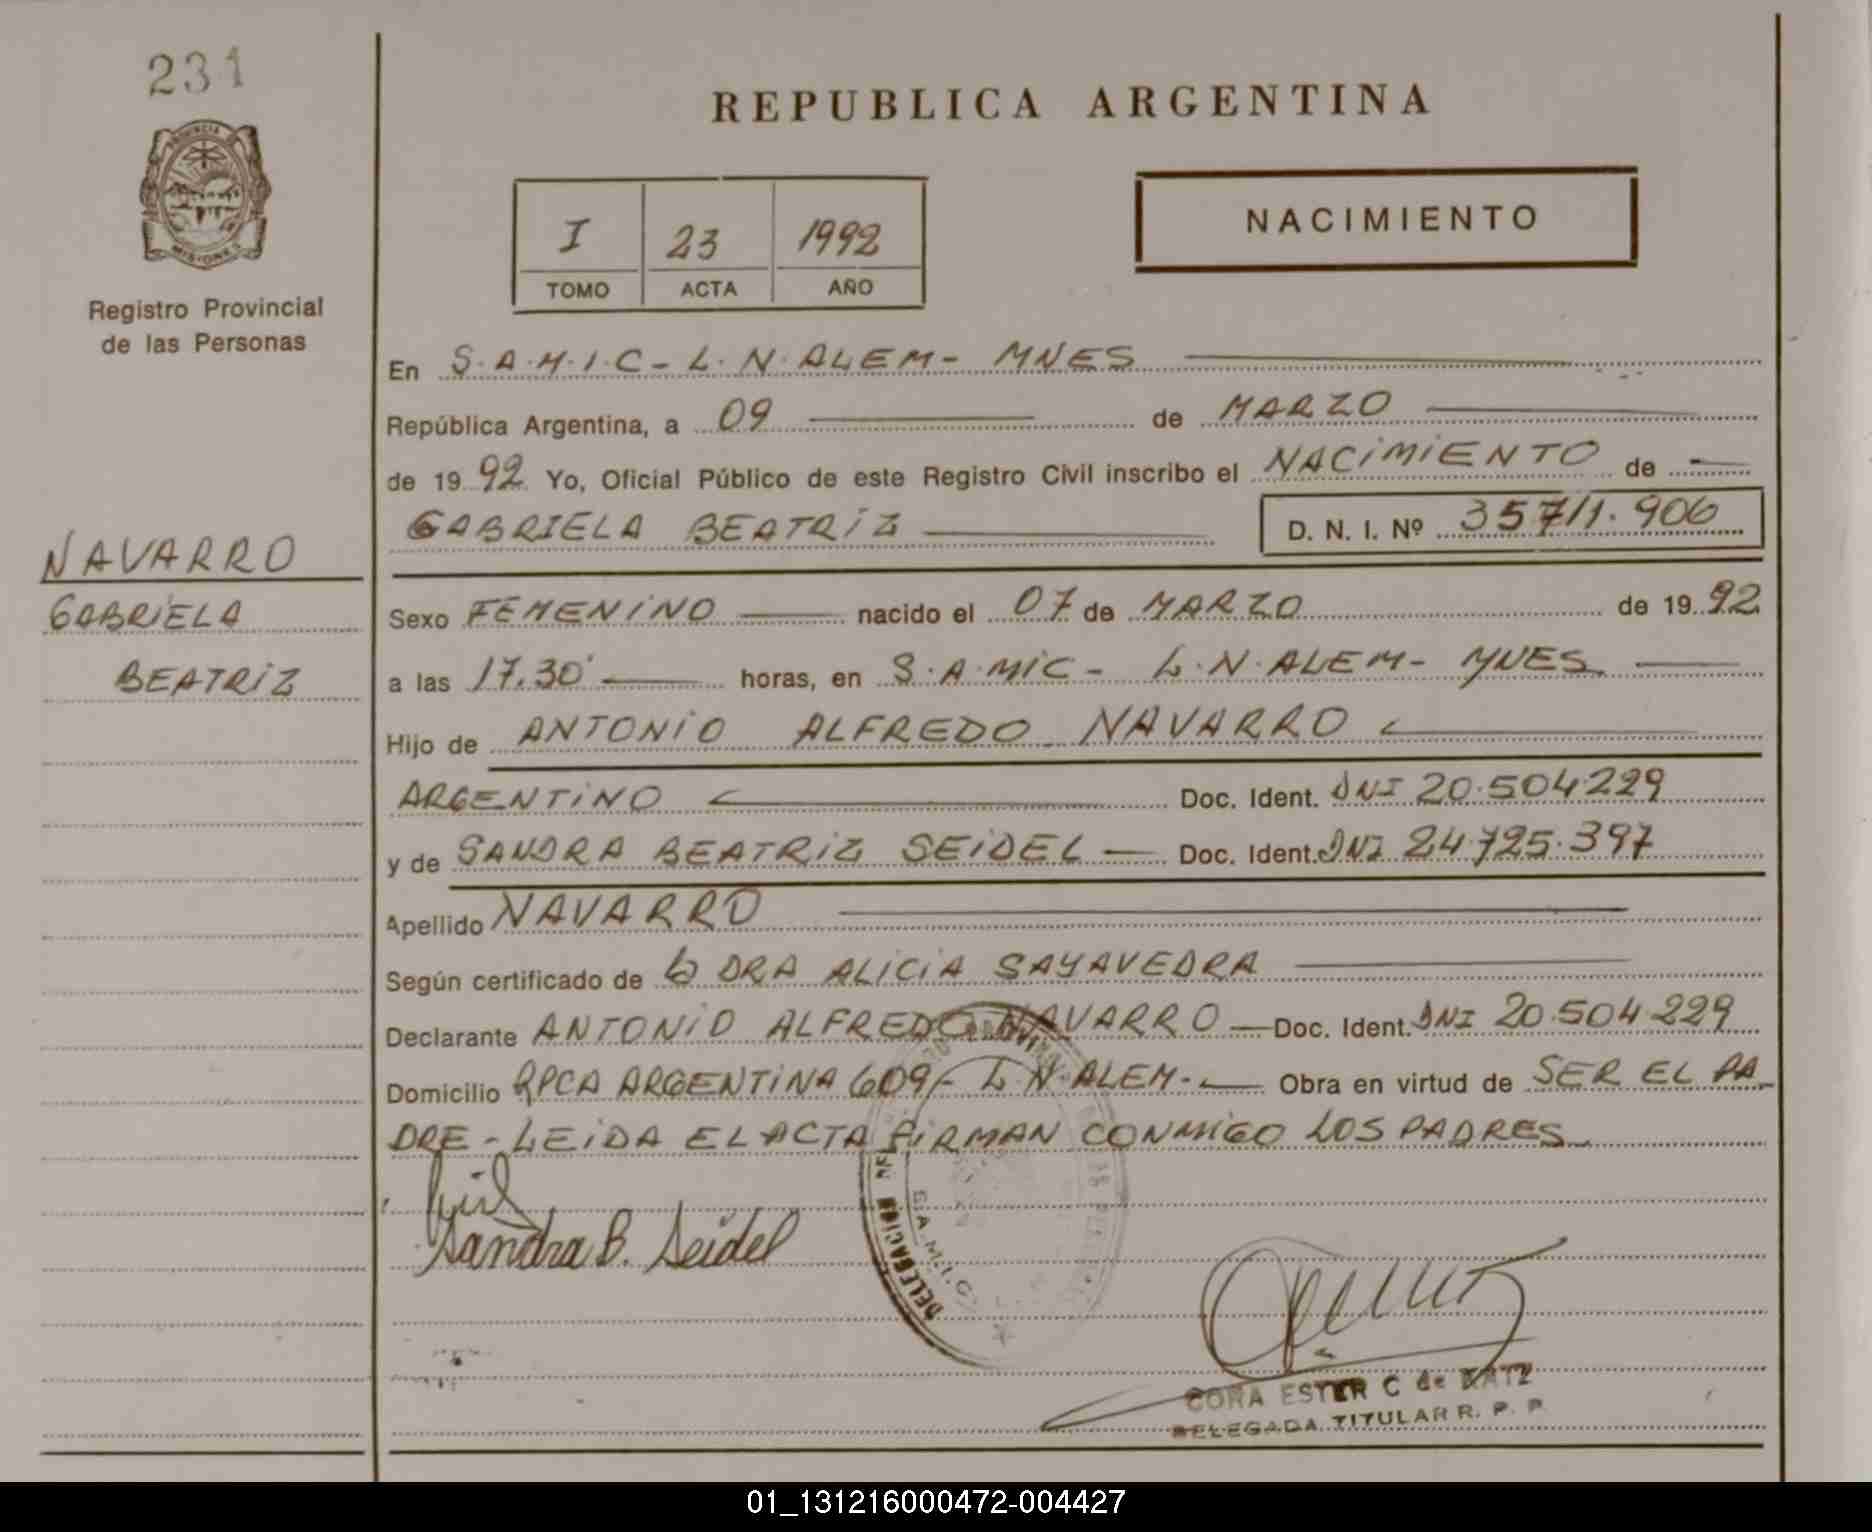 231
PROVINCIA DE
MISIONES
Registro Provincial
de las Personas
NAVARRO
GABRIELA
BEATRIZ
REPUBLICA ARGENTINA
I 23 1992
TOMO ACTA AÑO
NACIMIENTO
En S.A.M.I.C - L.N.ALEM - MNES
República Argentina, a 09 de MARZO
de 1992 Yo, Oficial Público de este Registro Civil inscribo el NACIMIENTO de
GABRIELA BEATRIZ D. N. I. Nº 35711.906
Sexo FEMENINO nacido el 07 de MARZO de 1992
a las 17.30 horas, en S.A.MIC - L.N.ALEM - MNES
Hijo de ANTONIO ALFREDO NAVARRO
ARGENTINO Doc. Ident. DNI 20.504.229
y de SANDRA BEATRIZ SEIDEL Doc. Ident. DNI 24.725.397
Apellido NAVARRO
Según certificado de DRA ALICIA SAYAVEDRA
Declarante ANTONIO ALFREDO NAVARRO Doc. Ident. DNI 20.504.229
Domicilio RPCA ARGENTINA 609 - L.N.ALEM - Obra en virtud de SER EL PA
DRE - LEIDA EL ACTA FIRMAN CONMIGO LOS PADRES
Sandra B. Seidel
DELEGACION
S.A.M.I.C.
CORA ESTER C de KATZ
DELEGADA TITULAR R. P. P.
01_131216000472-004427